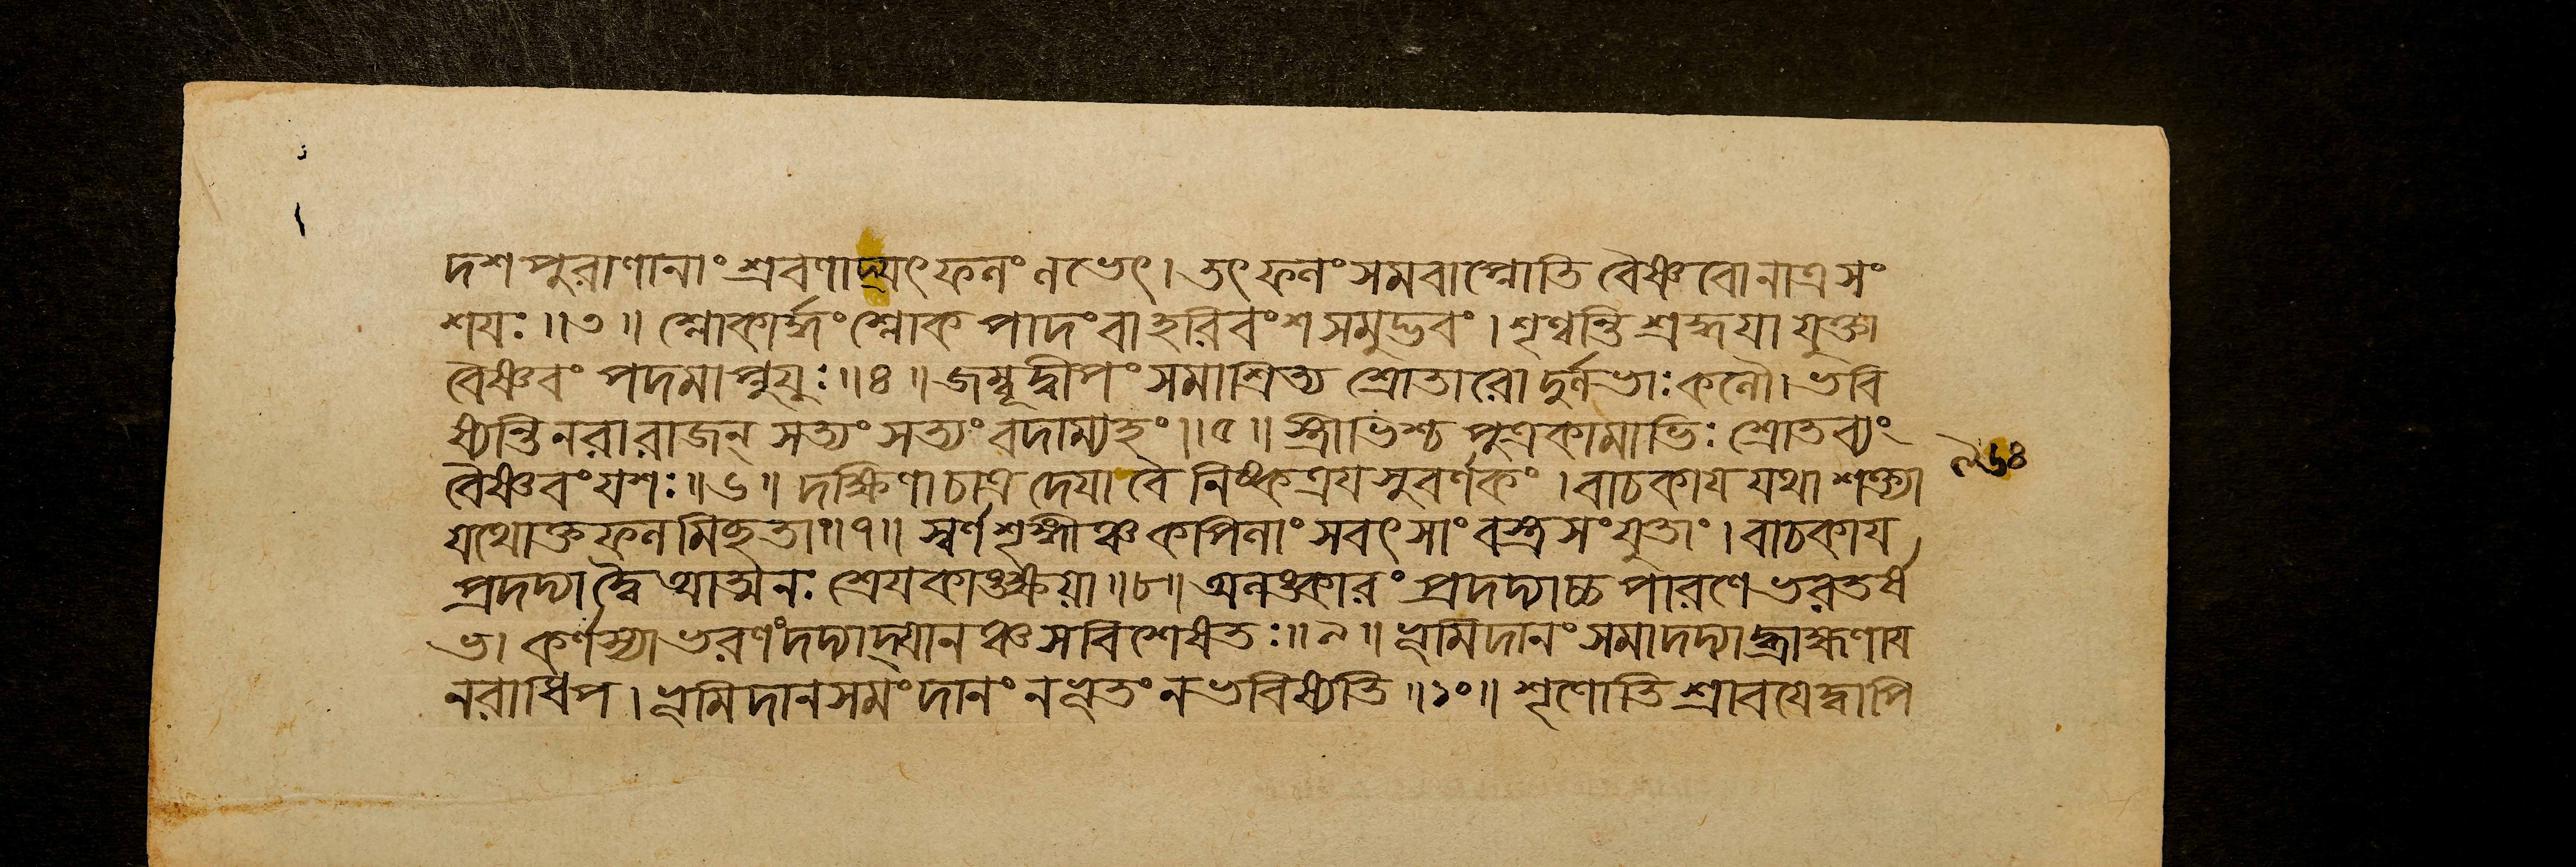 দশপুরাণানাং শ্রবণাদ্যৎফলং লভেৎ। তৎফলং সমবাপ্নোতি বৈষ্ণবোনাত্রসং
শয়ঃ॥৩॥ শ্লোকার্দ্ধং শ্লোকপাদং বা হরিবংশসমুদ্ভবং। শৃণ্বন্তি শ্রদ্ধয়া যুক্তা
বৈষ্ণবং পদমাপ্নুয়ুঃ॥৪॥ জম্বূদ্বীপং সমাশ্রিত্য শ্রোতারো দুর্লভাঃ কলৌ। ভবি
ষ্যন্তি নরা রাজন্ সত্যং সত্যং বদাম্যহং॥৫॥ স্ত্রীভিশ্চ পুত্রকামাভিঃ শ্রোতব্যং
বৈষ্ণবং যশঃ॥৬॥ দক্ষিণা চাত্র দেয়া বৈ নিষ্কত্রয়সুবর্ণকং। বাচকায় যথাশক্ত্যা
যথোক্তফলমিছতা॥৭॥ স্বর্ণশৃঙ্গীঞ্চ কপিলাং সবৎসাং বস্ত্রসংযুতাং। বাচকায়
প্রদদ্যাদ্বৈ আত্মনঃ শ্রেয়কাঙ্ক্ষয়া॥৮॥ অলঙ্কারং প্রদদ্যাচ্চ পারণে ভরতর্ষ
ভ। কর্ণস্যাভরণং দদ্যাদ্যানঞ্চ সবিশেষতঃ॥৯॥ ভূমিদানং সমাদদ্যাদ্ব্রাহ্মণায়
নরাধিপ। ভূমিদানসমং দানং ন ভূতং ন ভবিষ্যতি॥১০॥ শৃণোতি শ্রাবয়েদ্বাপি